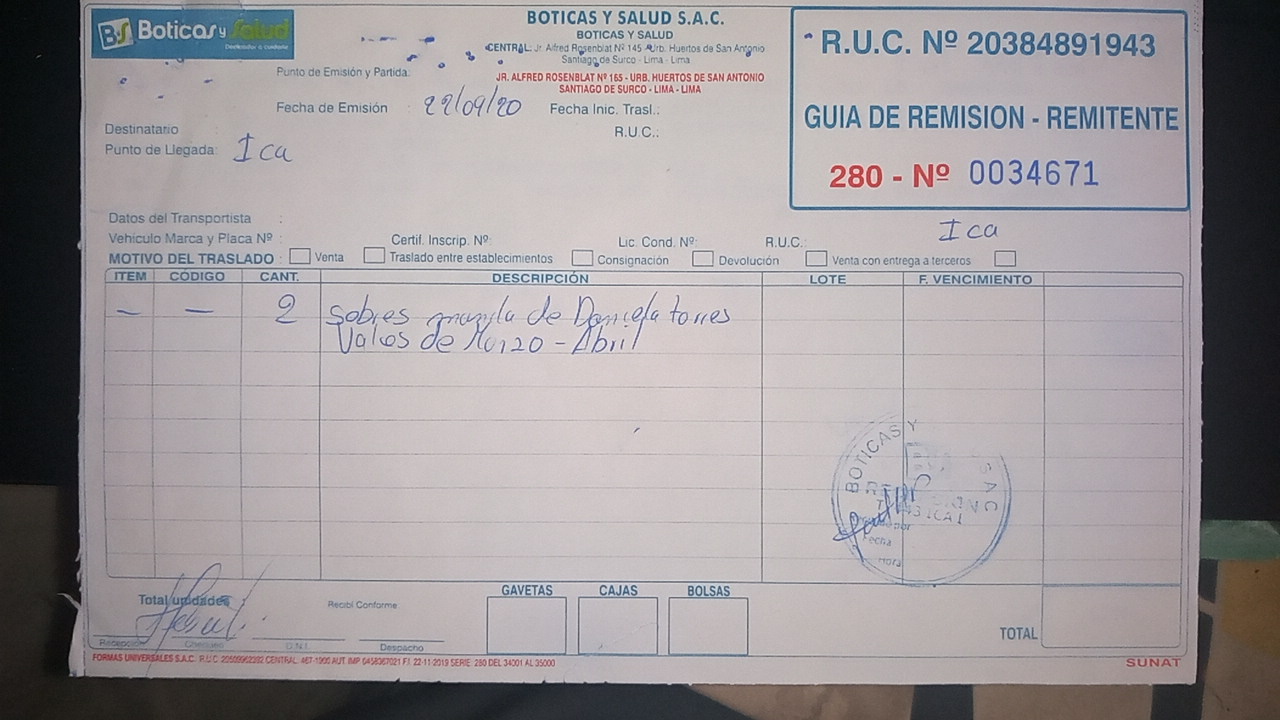 BS Boticas y Salud
BOTICAS Y SALUD S.A.C.
BOTICAS Y SALUD
CENTRAL: Jr. Alfred Rosenblat Nº 145 - Urb. Huertos de San Antonio
Santiago de Surco - Lima - Lima
JR. ALFRED ROSENBLAT Nº 165 - URB. HUERTOS DE SAN ANTONIO
SANTIAGO DE SURCO - LIMA - LIMA
R.U.C. Nº 20384891943
GUIA DE REMISION - REMITENTE
280 - Nº 0034671
Punto de Emisión y Partida:
Fecha de Emisión : 22/09/20 Fecha Inic. Trasl.:
Destinatario : R.U.C.:
Punto de Llegada: Ica
Datos del Transportista :
Ica
Vehiculo Marca y Placa Nº : Certif. Inscrip. Nº: Lic. Cond. Nº: R.U.C.:
MOTIVO DEL TRASLADO : Venta Traslado entre establecimientos Consignación Devolución Venta con entrega a terceros
ITEM CÓDIGO CANT. DESCRIPCIÓN LOTE F. VENCIMIENTO
— — 2 Sobres manila de Daniela torres
Vales de Marzo - Abril
BOTICAS Y SAC
Fecha
Hora
GAVETAS CAJAS BOLSAS
Total unidades Recibí Conforme:
TOTAL
Recepción Chequeo D.N.I. Despacho
FORMAS UNIVERSALES S.A.C. R.U.C. CENTRAL: 467-1900 AUT. IMP. 0458367021 F.I. 22-11-2019 SERIE: 280 DEL 34001 AL 35000
SUNAT